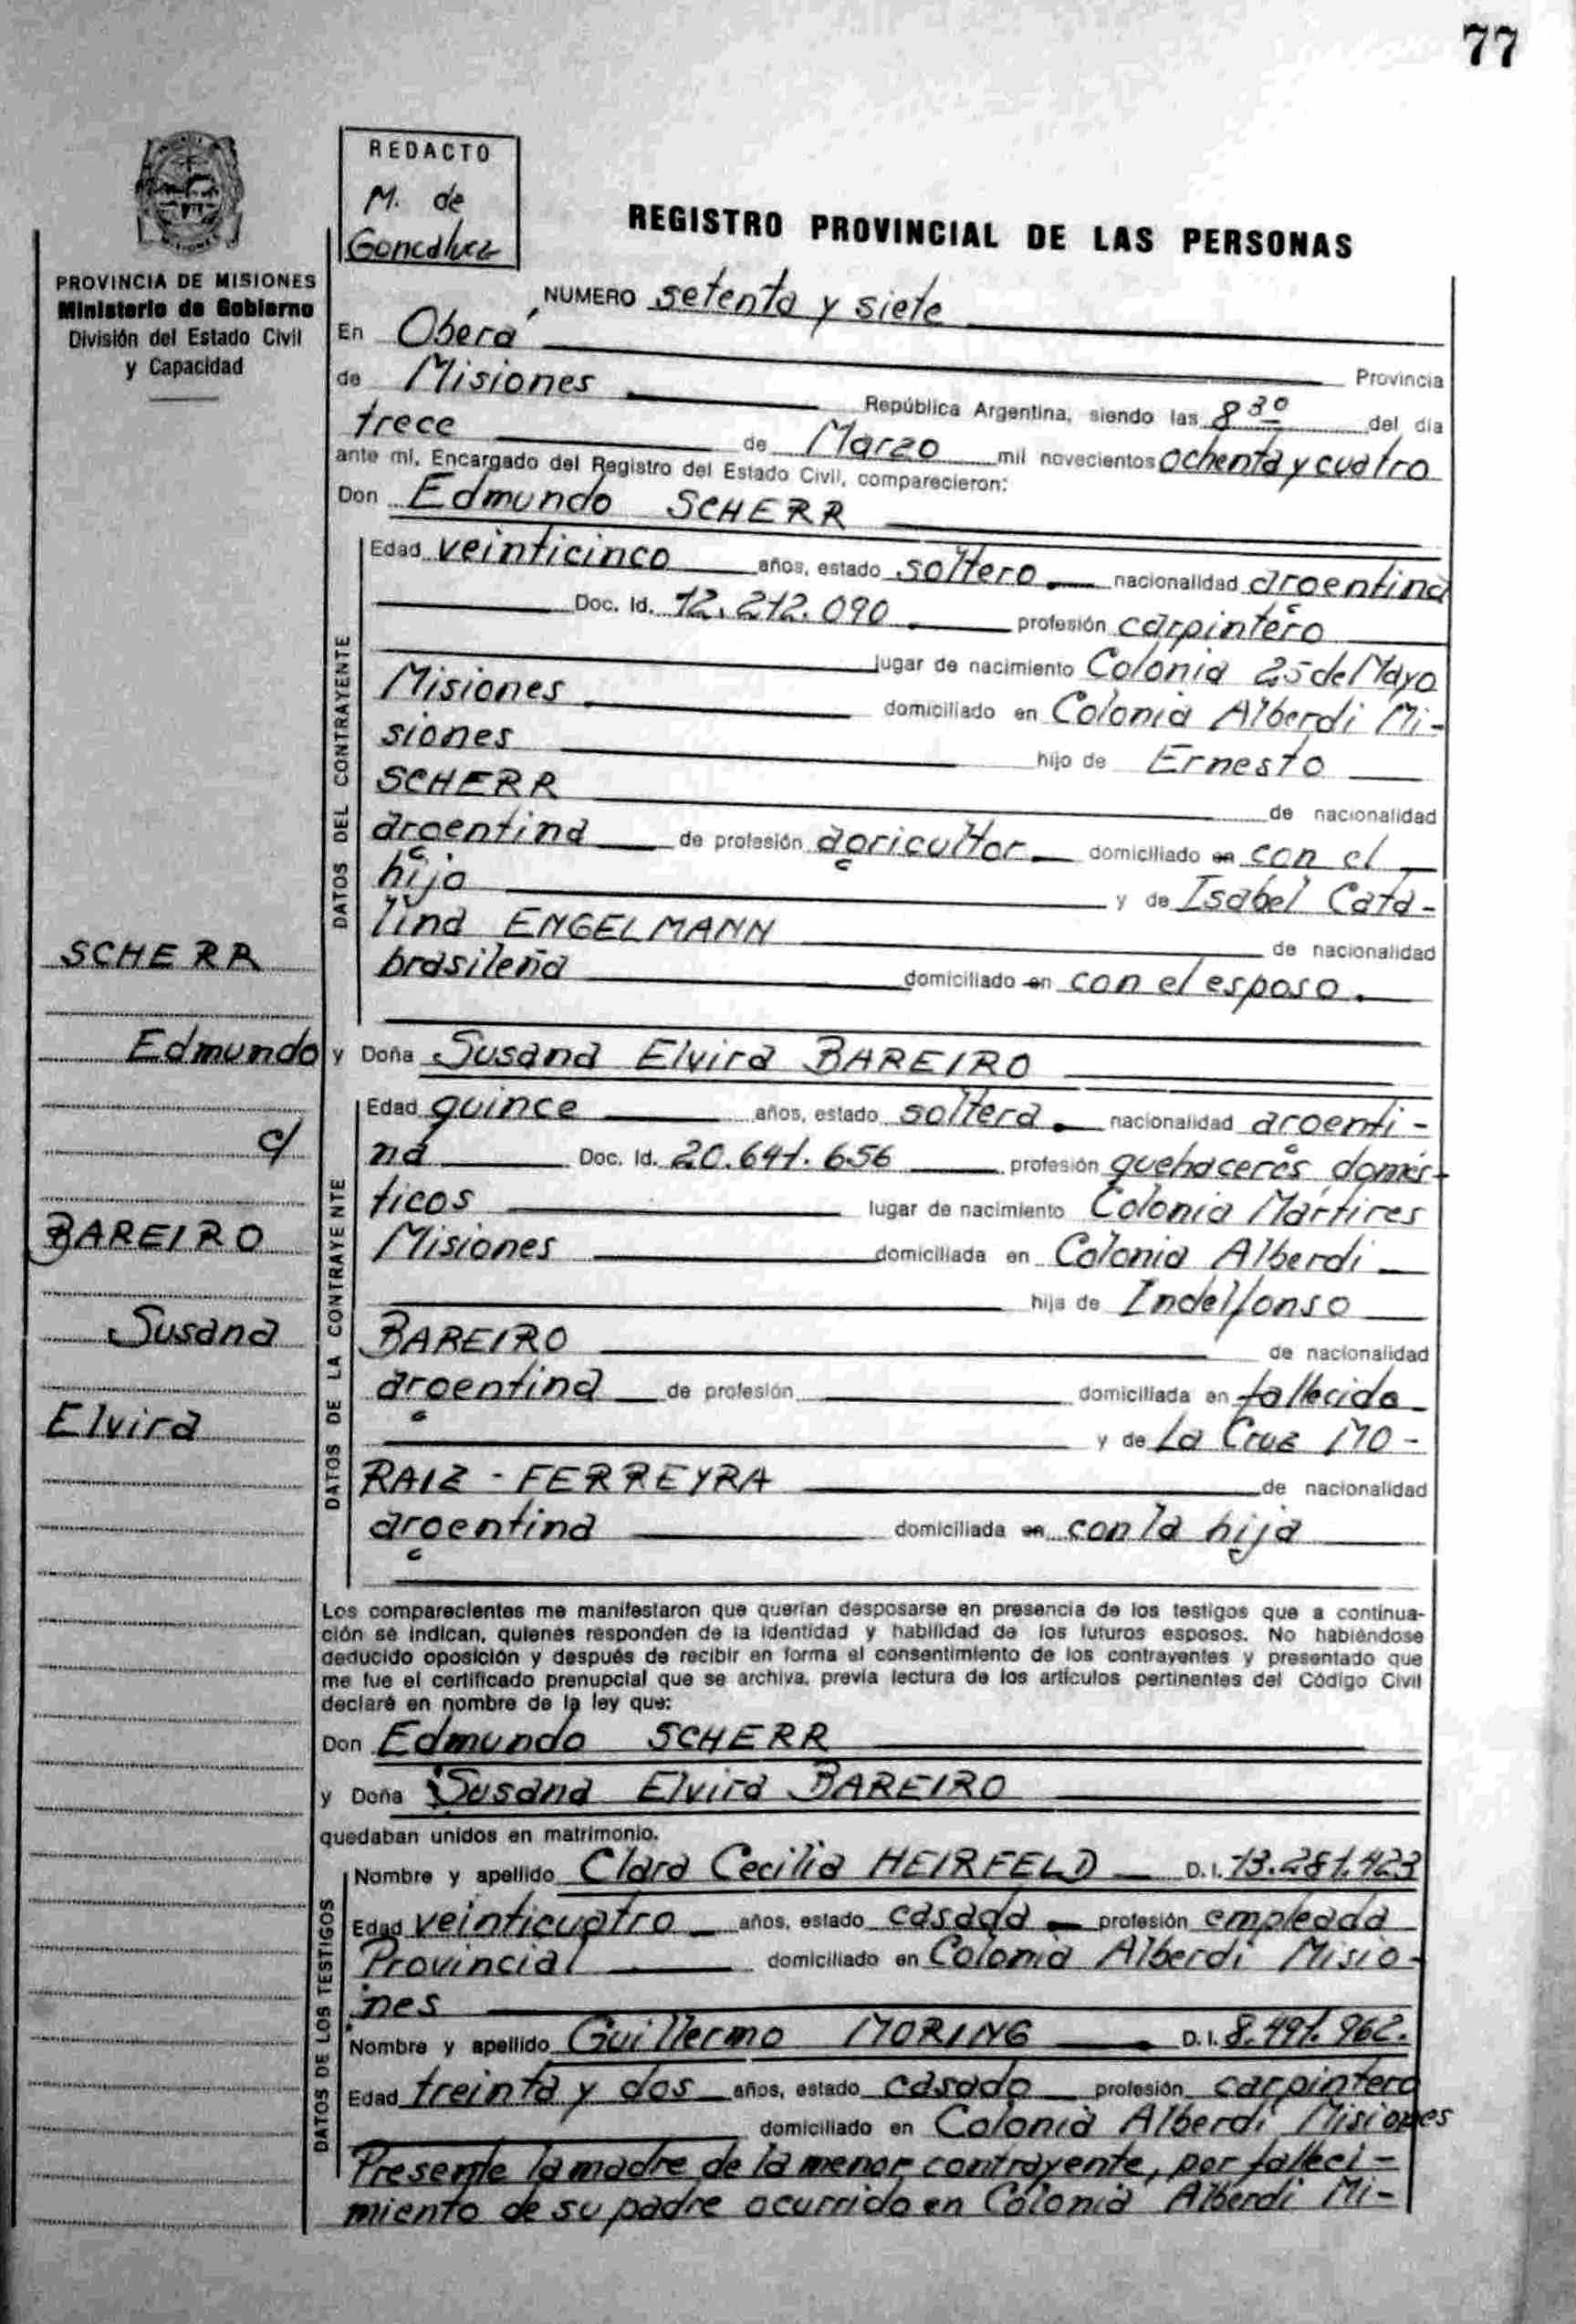 77
REDACTO
M. de
PROVINCIA DE MISIONES
Ministerio de Gobierno
División del Estado Civil
y Capacidad
REGISTRO PROVINCIAL DE LAS PERSONAS
NUMERO setenta y siete
En Oberá
Provincia
de Misiones República Argentina, siendo las 8 30 del día
trece de Marzo mil novecientos ochenta y cuatro
ante mí, Encargado del Registro del Estado Civil, comparecieron:
Don Edmundo SCHERR
DATOS DEL CONTRAYENTE
Edad veinticinco años, estado soltero nacionalidad argentina
Doc. Id. 12.212.090 profesión carpintero
lugar de nacimiento Colonia 25 de Mayo
Misiones domiciliado en Colonia Alberdi Mi-
siones hijo de Ernesto
SCHERR de nacionalidad
argentina de profesión agricultor domiciliado en con el
hijo y de Isabel Cata-
lina ENGELMANN de nacionalidad
brasileña domiciliado en con el esposo.
SCHERR
Edmundo
c/
BAREIRO
Susana
Elvira
y Doña Susana Elvira BAREIRO
DATOS DE LA CONTRAYENTE
Edad quince años, estado soltera nacionalidad argenti-
na Doc. Id. 20.641.656 profesión quehaceres domés-
ticos lugar de nacimiento Colonia Mártires
Misiones domiciliada en Colonia Alberdi
hija de Indelfonso
BAREIRO de nacionalidad
argentina de profesión domiciliada en fallecido
y de La Cruz MO-
RAIZ - FERREYRA de nacionalidad
argentina domiciliada en con la hija
Los comparecientes me manifestaron que querían desposarse en presencia de los testigos que a continua-
ción se indican, quienes responden de la identidad y habilidad de los futuros esposos. No habiéndose
deducido oposición y después de recibir en forma el consentimiento de los contrayentes y presentado que
me fue el certificado prenupcial que se archiva, previa lectura de los artículos pertinentes del Código Civil
declaré en nombre de la ley que:
Don Edmundo SCHERR
y Doña Susana Elvira BAREIRO
quedaban unidos en matrimonio.
DATOS DE LOS TESTIGOS
Nombre y apellido Clara Cecilia HEIRFELD D.I. 13.281.423
Edad veinticuatro años, estado casada profesión empleada
Provincial domiciliado en Colonia Alberdi Misio-
nes
Nombre y apellido Guillermo MORING D.I. 8.491.962.
Edad treinta y dos años, estado casado profesión carpintero
domiciliado en Colonia Alberdi Misiones
Presente la madre de la menor contrayente, por falleci-
miento de su padre ocurrido en Colonia Alberdi Mi-